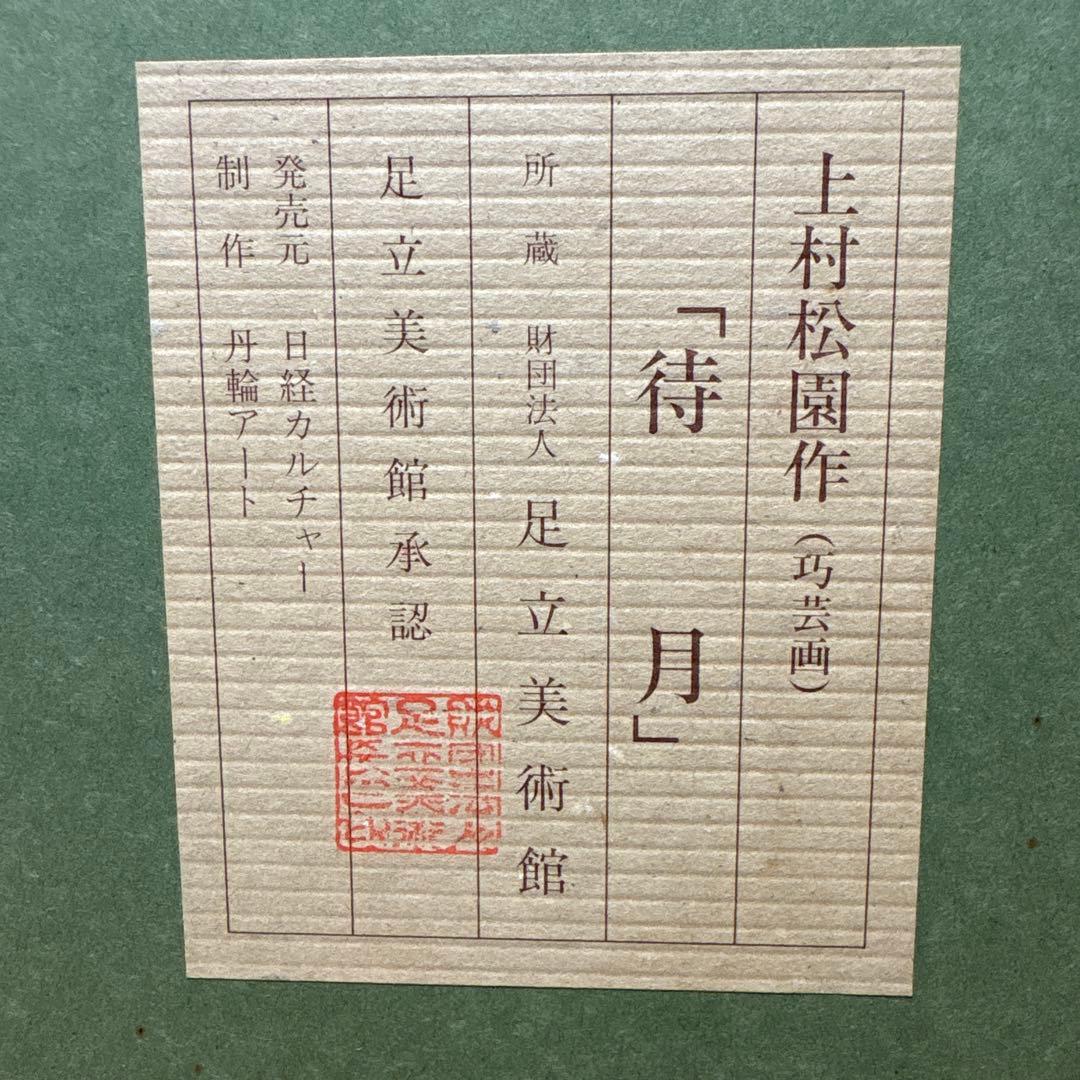 上村松園作(巧芸画)
「待月」
所蔵 財団法人 足立美術館
足立美術館承認
発売元 日経カルチャー
制作 丹輪アート